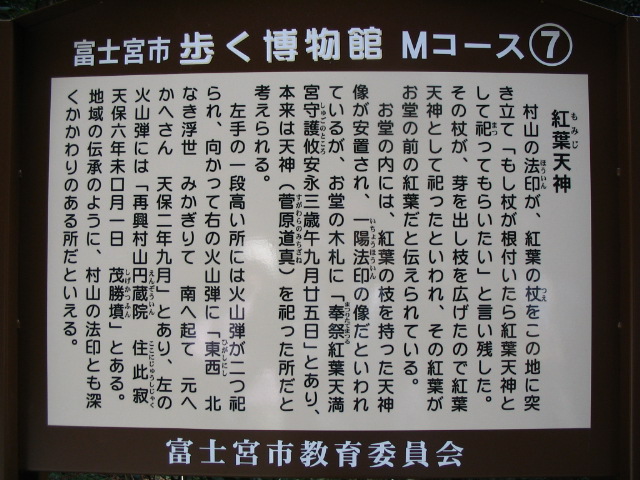 富士宮市 歩く博物館 Mコース⑦
紅葉天神
もみじ
村山の法印が、紅葉の杖をこの地に突
ほういん
つえ
き立て「もし杖が根付いたら紅葉天神と
して祀ってもらいたい」と言い残した。
まつ
その杖が、芽を出し枝を広げたので紅葉
天神として祀ったといわれ、その紅葉が
お堂の前の紅葉だと伝えられている。
お堂の内には、紅葉の枝を持った天神
像が安置され、一陽法印の像だといわれ
いちようほういん
ているが、お堂の木札に「奉祭紅葉天満
まつりたてまつる
宮守護攸安永三歳午九月廿五日」とあり、
しゅごのところ
本来は天神(菅原道真)を祀った所だと
すがわらのみちざね
考えられる。
左手の一段高い所には火山弾が二つ祀
られ、向かって右の火山弾に「東西 北
ひがしにし
なき浮世 みかぎりて 南へ起て 元へ
かへさん 天保二年九月」とあり、左の
火山弾には「再興村山円蔵院 住此寂
えんぞういん
ここにじゅうしじゃく
天保六年未口月一日 茂勝墳」とある。
しげかつふん
地域の伝承のように、村山の法印とも深
くかかわりのある所だといえる。
富士宮市教育委員会